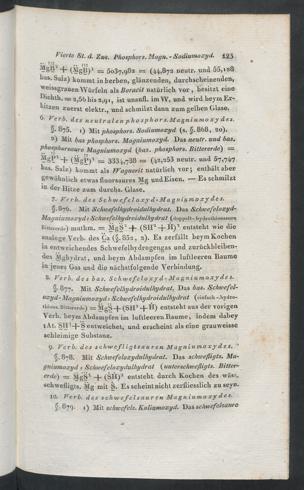 Vierte St. d. Zus. Phosphors. Magn.-Sodiumoxyd. 125
= 5037,982 = (44,872 neutr. und 55,128
bas. Salz) kommt in herben, glänzenden, durchscheinenden,
weissgrauen Würfeln als Boracit natürlich vor, besitzt eine
Dichth. = 2,56 bis 2,91, ist unaufl. im W. und wird beym Er-
hitzen zuerst elektr., und schmilzt dann zum gelben Glase.
6. Verb. des neutralen phosphors. Magniumoxydes.
§. 875. 1) Mit phosphors. Sodiumoxyd (s. §. 868, 20).
2) Mit bas. phosphors. Magniumoxyd. Das neutr. und bas.
phosphorsaure Magniumoxyd (bas. phosphors. Bittererde) =
= 3334,738 = (42,253 neutr. und 57,747
bas. Salz) kommt als Wagnerit natürlich vor; enthält aber
gewöhnlich etwas fluorsaures Mg und Eisen. — Es schmilzt
in der Hitze zum durchs. Glase.
7. Verb. des Schwefeloxyd-Magniumoxydes.
§. 876. Mit Schwefelhydroidulhydrat. Das Schwefeloxyd-
Magniumoxyd: Schwefelhydroidulhydrat (doppelt-hydrothionsaure
Bittererde) muthm. = MgS² + (SH² + H)² entsteht wie die
analoge Verb. des Ca (§. 851, 2). Es zerfällt beym Kochen
in entweichendes Schwefelhydrogengas und zurückbleiben-
des Mghydrat, und beym Abdampfen im luftleeren Raume
in jenes Gas und die nächstfolgende Verbindung.
8. Verb. des bas. Schwefeloxyd-Magniumoxydes.
§. 877. Mit Schwefelhydroidulhydrat. Das bas. Schwefel-
oxyd-Magniumoxyd: Schwefelhydroidulhydrat (einfach-hydro-
thions. Bittererde) = MgS + (SH² + H) entsteht aus der vorigen
Verb. beym Abdampfen im luftleeren Raume, indem dabey
1 At. SH² + S entweichet, und erscheint als eine grauweisse
schleimige Substanz.
9. Verb. des schwefligtsauren Magniumoxydes.
§. 878. Mit Schwefeloxydulhydrat. Das schwefligts. Ma-
gniumoxyd: Schwefeloxydulhydrat (unterschwefligts. Bitter-
erde) = entsteht durch Kochen des wäss.
schwefligts. Mg mit S. Es scheint nicht zerfliesslich zu seyn.
10. Verb. des schwefelsauren Magniumoxydes.
§. 879. 1) Mit schwefels. Kaliumoxyd. Das schwefelsaure